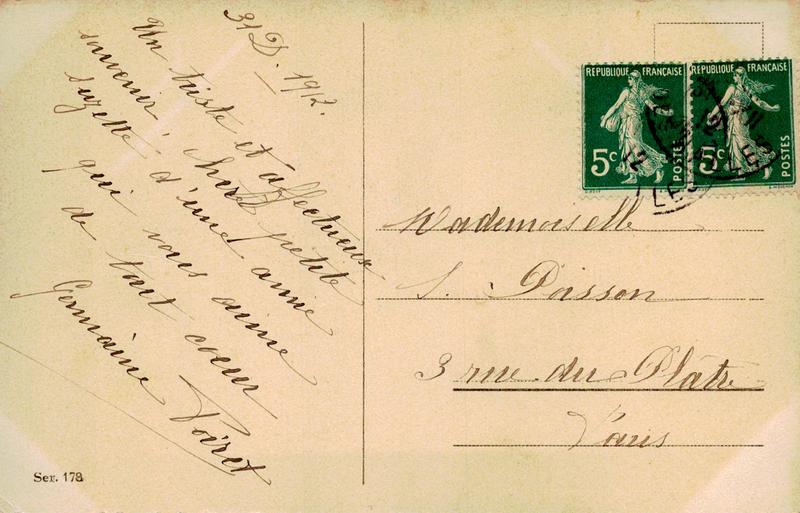 31 D. 1912.
Un triste et affectueux
souvenir, chere petite
Suzette d'une amie
qui vous aime
de tout coeur
Germaine Poiret
RÉPUBLIQUE FRANÇAISE
5c
POSTES
RÉPUBLIQUE FRANÇAISE
5c
POSTES
Mademoiselle
S. Poisson
3 rue du Plâtre
Paris
Ser. 178